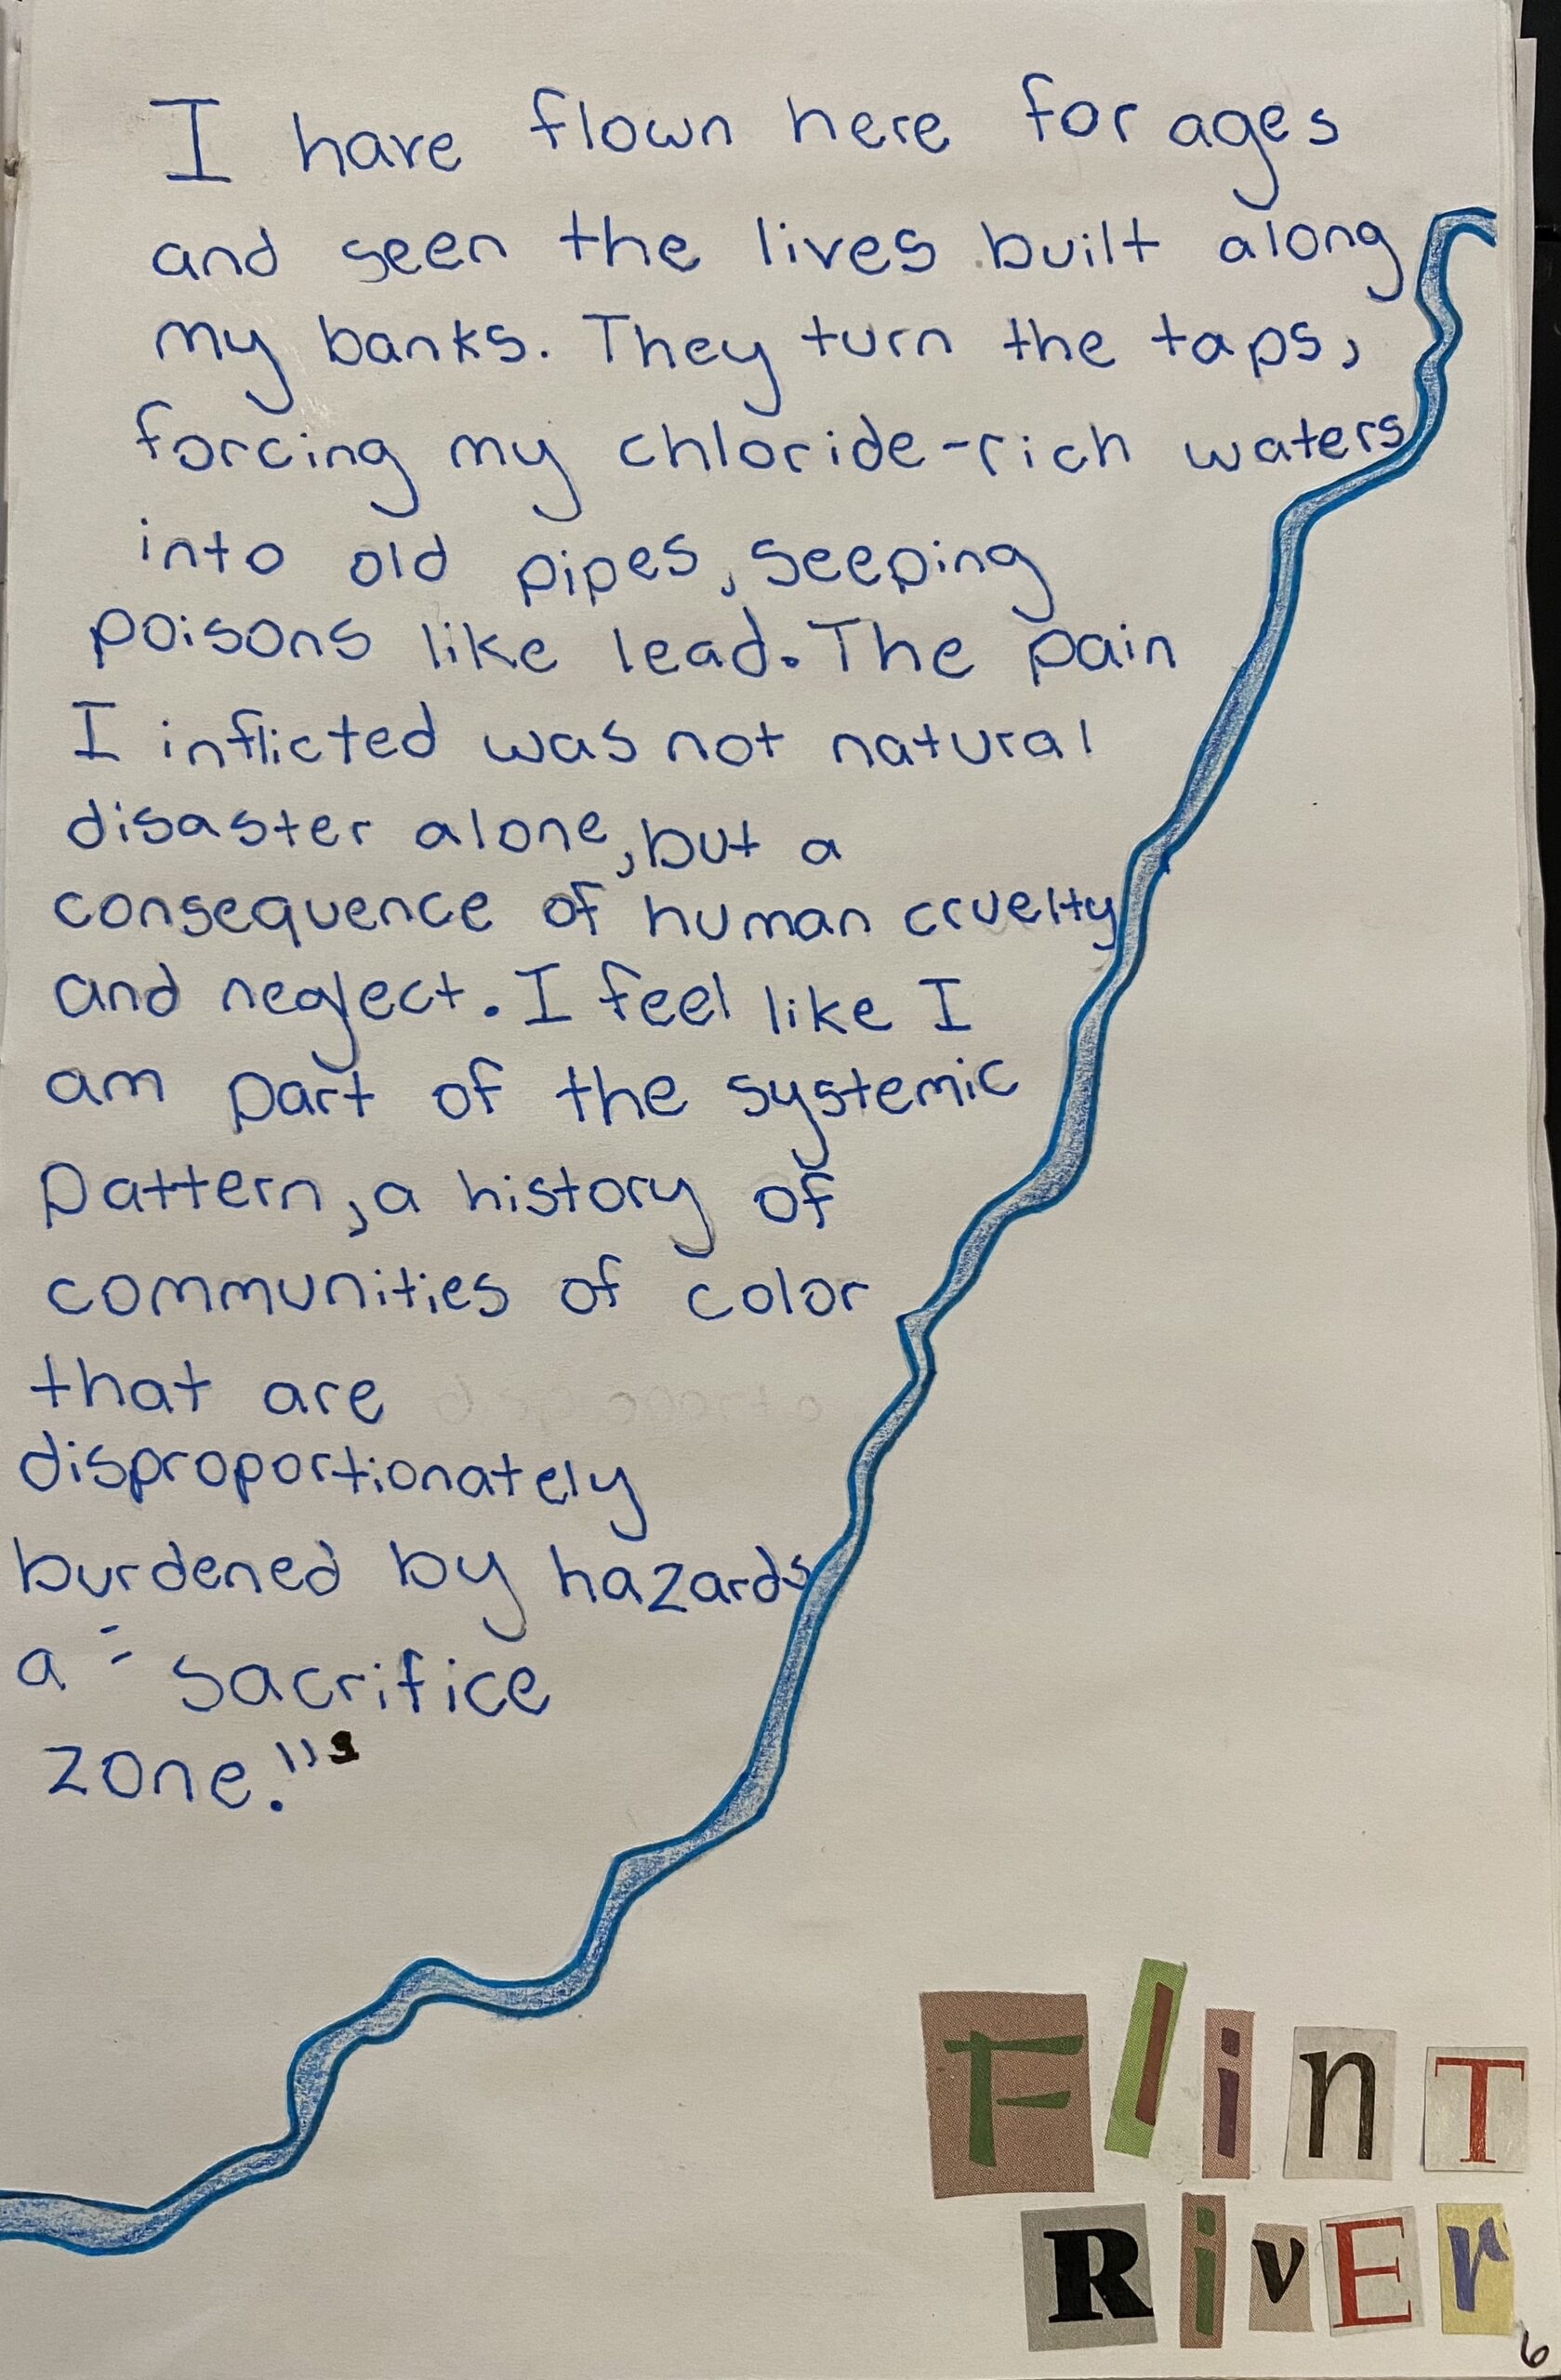 I have flown here for ages
and seen the lives built along
my banks. They turn the taps,
forcing my chloride-rich waters
into old pipes, seeping
poisons like lead. The pain
I inflicted was not natural
disaster alone, but a
consequence of human cruelty
and neglect. I feel like I
am part of the systemic
pattern, a history of
communities of color
that are
disproportionately
burdened by hazards
a "sacrifice
zone."
FlinT
RivEr
6